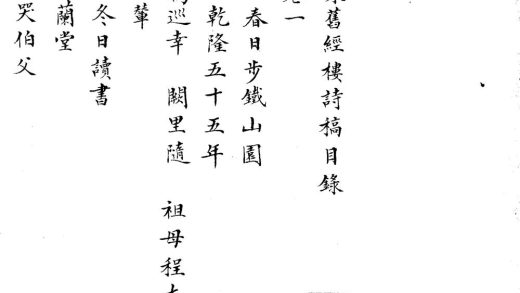 舊經樓詩稿目錄
一
春日步鐵山園
乾隆五十五年
巡幸 闕里隨 祖母程
輦
冬日讀書
蘭堂
哭伯父